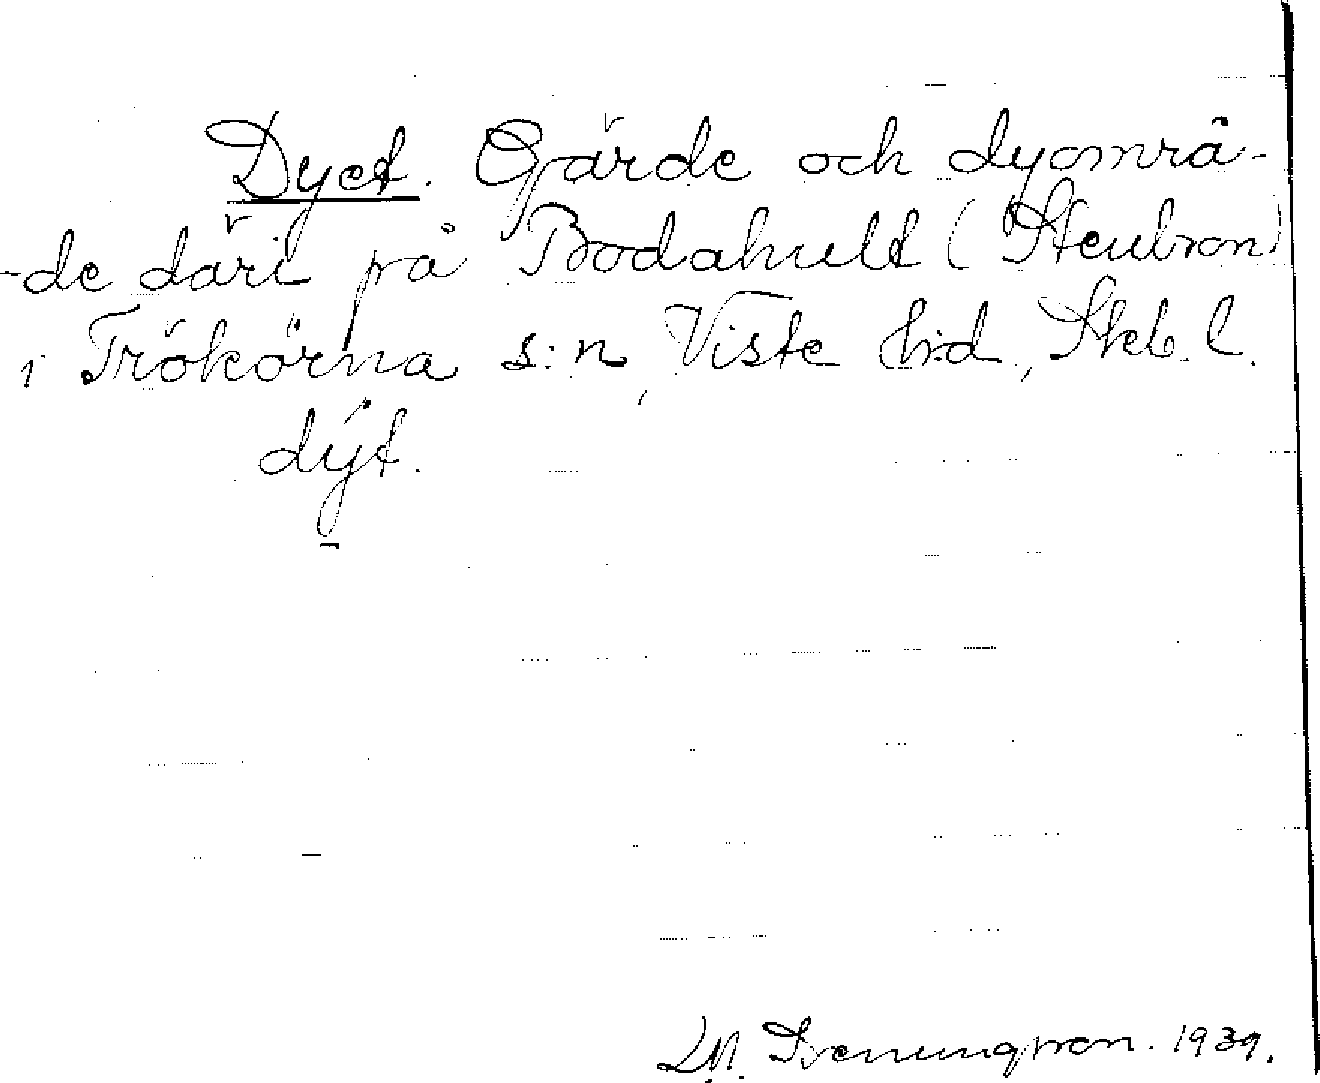 Dyet. Gärde och dyområ-
-de däri på Bodahult (Stenbron)
i Trökörna s:n, Viste h:d, Skb. l.
dýt.
Svenungsson. 1939.